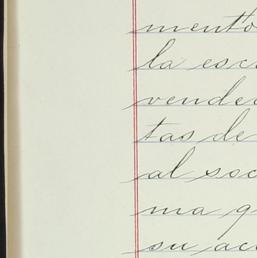 mento
la esc
vende
tas de
al soc
ma q
su ac